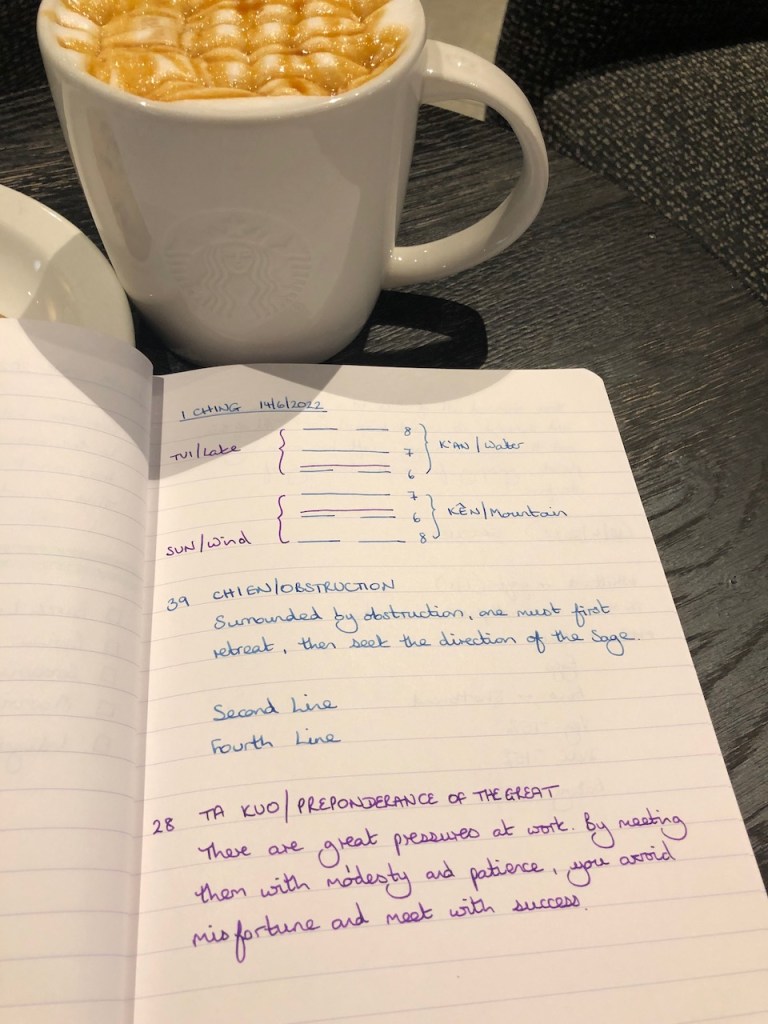 I CHING 14/6/2022
8
TUI/Lake 7 K'AN/Water
6
7
6 KÊN/Mountain
SUN/Wind 8
39 CHIEN/OBSTRUCTION
Surrounded by obstruction, one must first
retreat, then seek the direction of the Sage.
Second Line
Fourth Line
28 TA KUO/PREPONDERANCE OF THE GREAT
There are great pressures at work. By meeting
them with modesty and patience, you avoid
misfortune and meet with success.